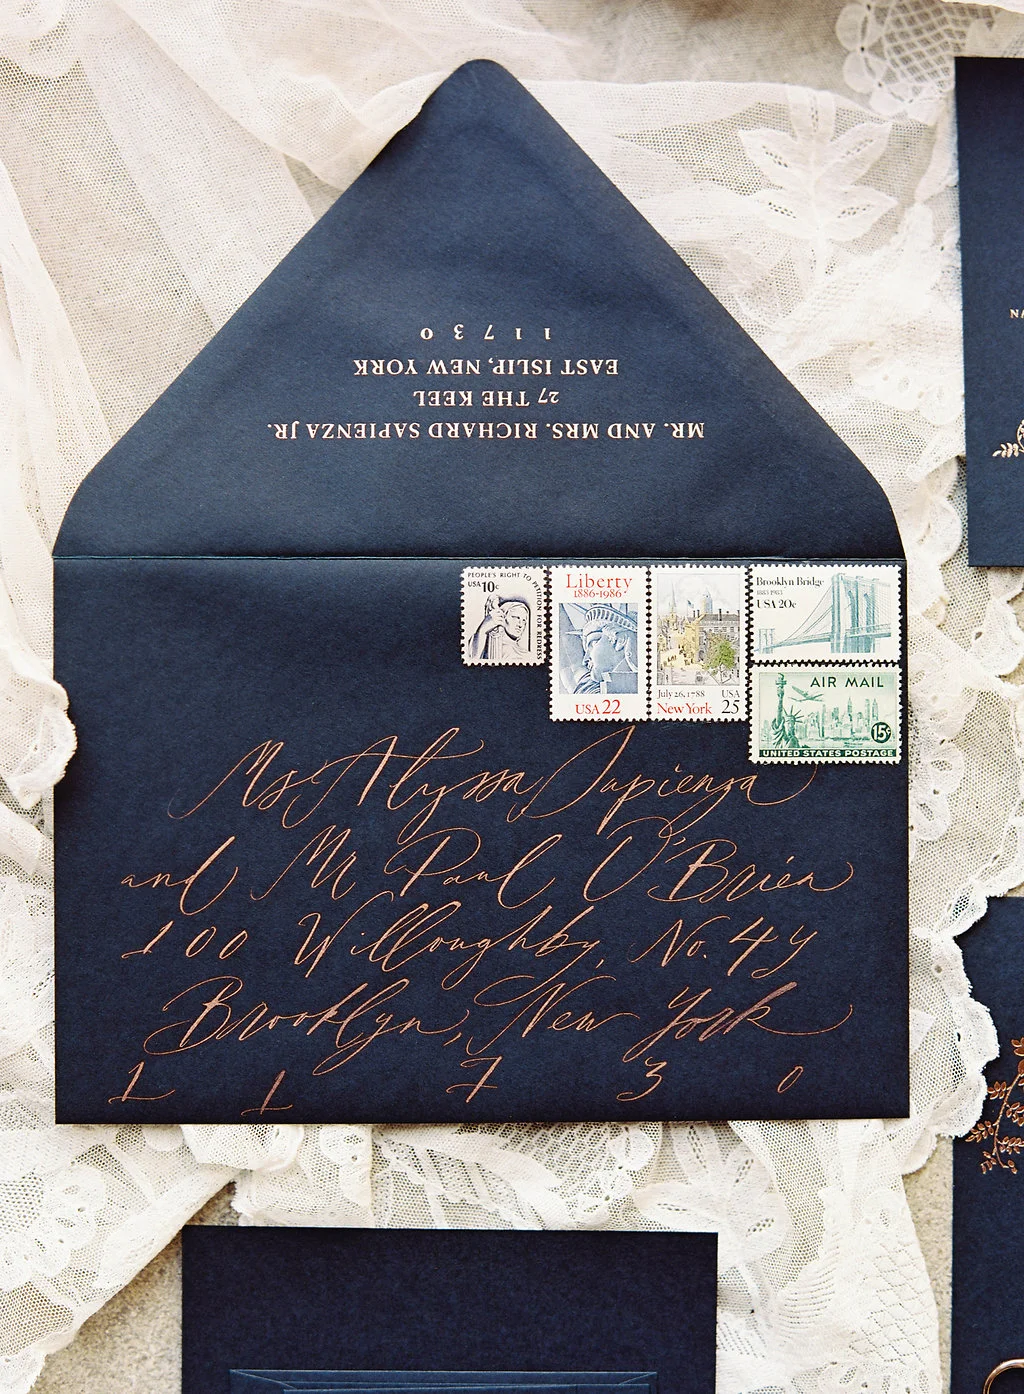 MR. AND MRS. RICHARD SAPIENZA JR.
27 THE KEEL
EAST ISLIP, NEW YORK
11730
PEOPLE'S RIGHT TO PETITION FOR REDRESS
USA 10c
Liberty
1886-1986
USA 22
July 26, 1788 USA
New York 25
Brooklyn Bridge
1883 1983
USA 20c
AIR MAIL
15¢
UNITED STATES POSTAGE
Ms Alyssa Sapienza
and Mr Paul O'Brien
100 Willoughby, No. 4y
Brooklyn, New York
1 1 7 3 0